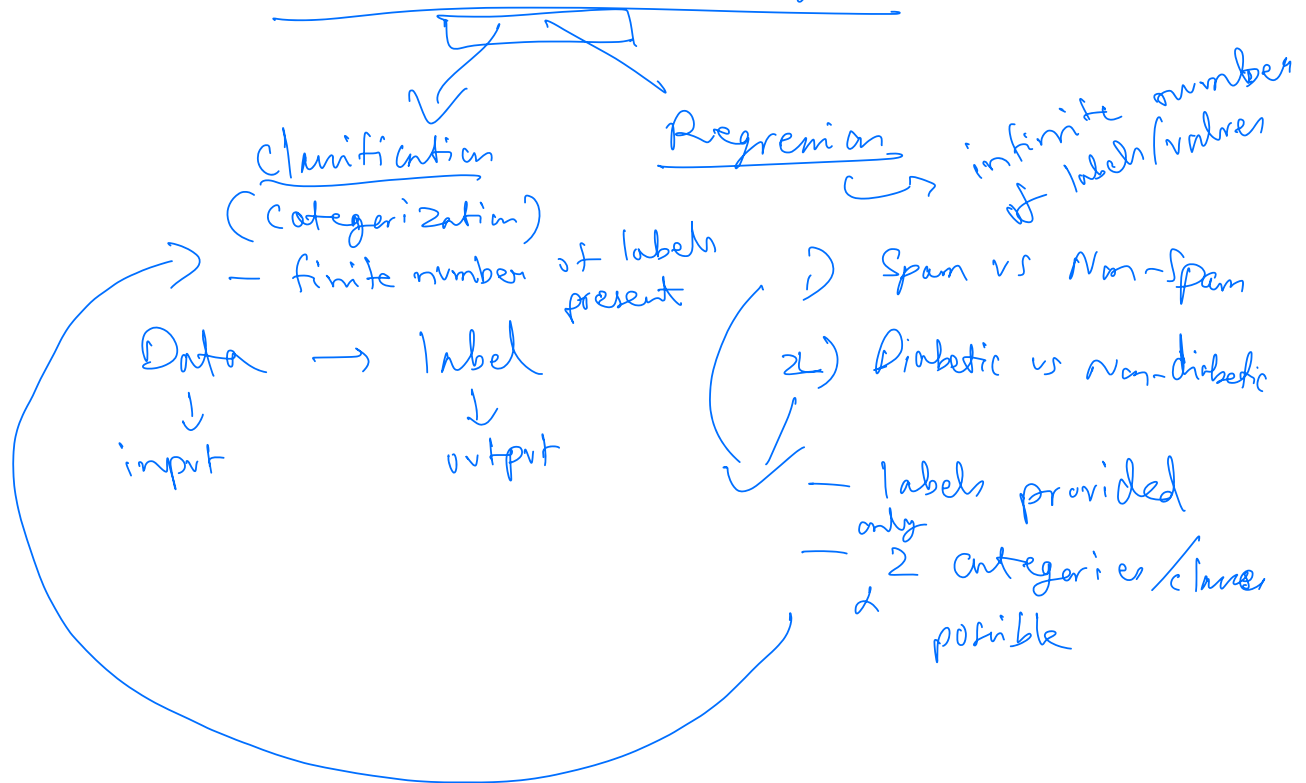 Classification
(Categorization)
- finite number of labels
present
Data → label
↓ ↓
input output
Regression
infinite number
of labels/values
1) Spam vs Non-Spam
2) Diabetic vs Non-diabetic
- labels provided
only
- 2 categories/classes
possible